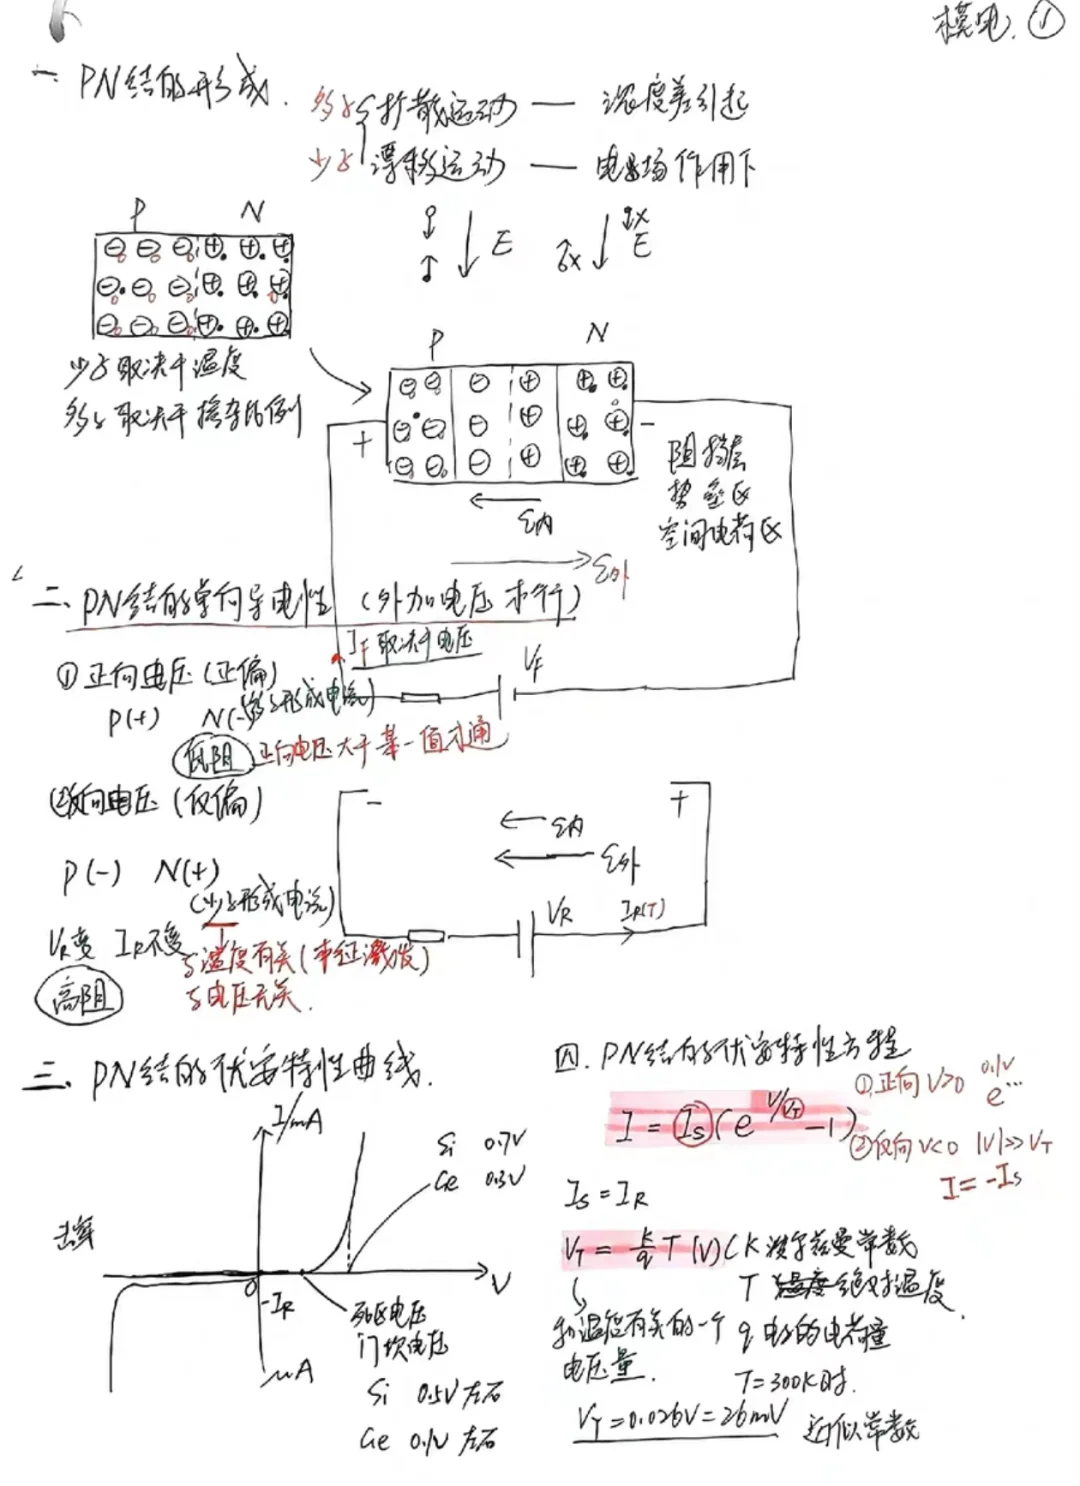 模电. ①
一. PN结的形成.
多子 扩散运动 — 浓度差引起
少子 漂移运动 — 电场作用下
E
E
P N
少子取决于温度
多子取决于掺杂比例
P N
+ -
阻挡层
势垒区
空间电荷区
ε内
ε外
二、PN结的单向导电性 (外加电压才行)
IF取决于电压
① 正向电压(正偏)
VF
P(+) N(-)
(多子形成电流)
低阻 正向电压大于某一值才通
②反向电压(反偏)
- +
ε内
ε外
P(-) N(+)
(少子形成电流)
VR IR(T)
VR变 IR不变
与温度有关(本征激发)
与电压无关.
高阻
三、PN结的伏安特性曲线.
I/mA
Si 0.7V
Ge 0.3V
击穿
0 V
-IR
死区电压
门坎电压
μA
Si 0.5V左右
Ge 0.1V左右
四. PN结的伏安特性方程
①正向V>0 0.1V e...
I = Is(e^V/VT -1)
②反向V<0 |V|>>VT
I=-Is
Is=IR
VT = k/q T (V) (K 波尔兹曼常数
T 温度绝对温度.
和温度有关的一个电压量.
q 电子的电荷量
T=300K时.
VT=0.026V=26mV 近似常数